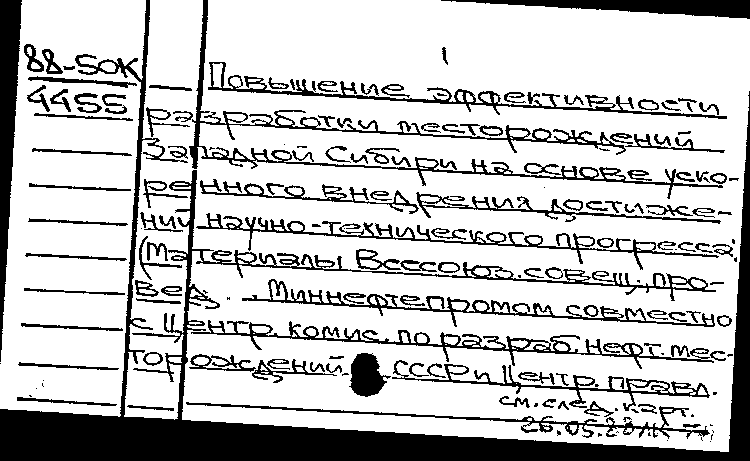 1
88-50К
4455
Повышение эффективности
разработки месторождений
Западной Сибири на основе уско-
ренного внедрения достиже-
ний научно-технического прогресса:
(Материалы Всесоюз. совещ., про-
вед. Миннефтепромом совместно
с Центр. комис. по разраб. нефт. мес-
торождений СССР и Центр. правл.
см. след. карт.
26.05.88